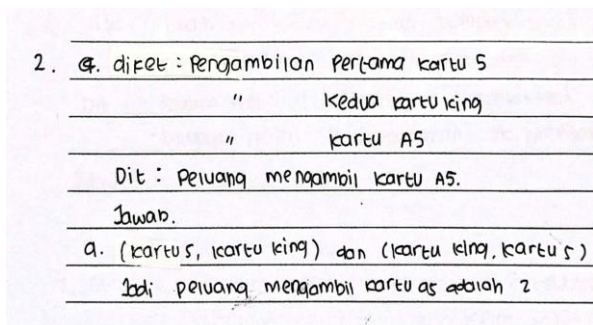 2. a. diket : Pengambilan Pertama kartu 5
" kedua kartu king
" kartu AS
Dit : Peluang mengambil kartu AS.
Jawab.
a. (kartu 5, kartu king) dan (kartu king, kartu 5)
Jadi peluang mengambil kartu as adalah 2